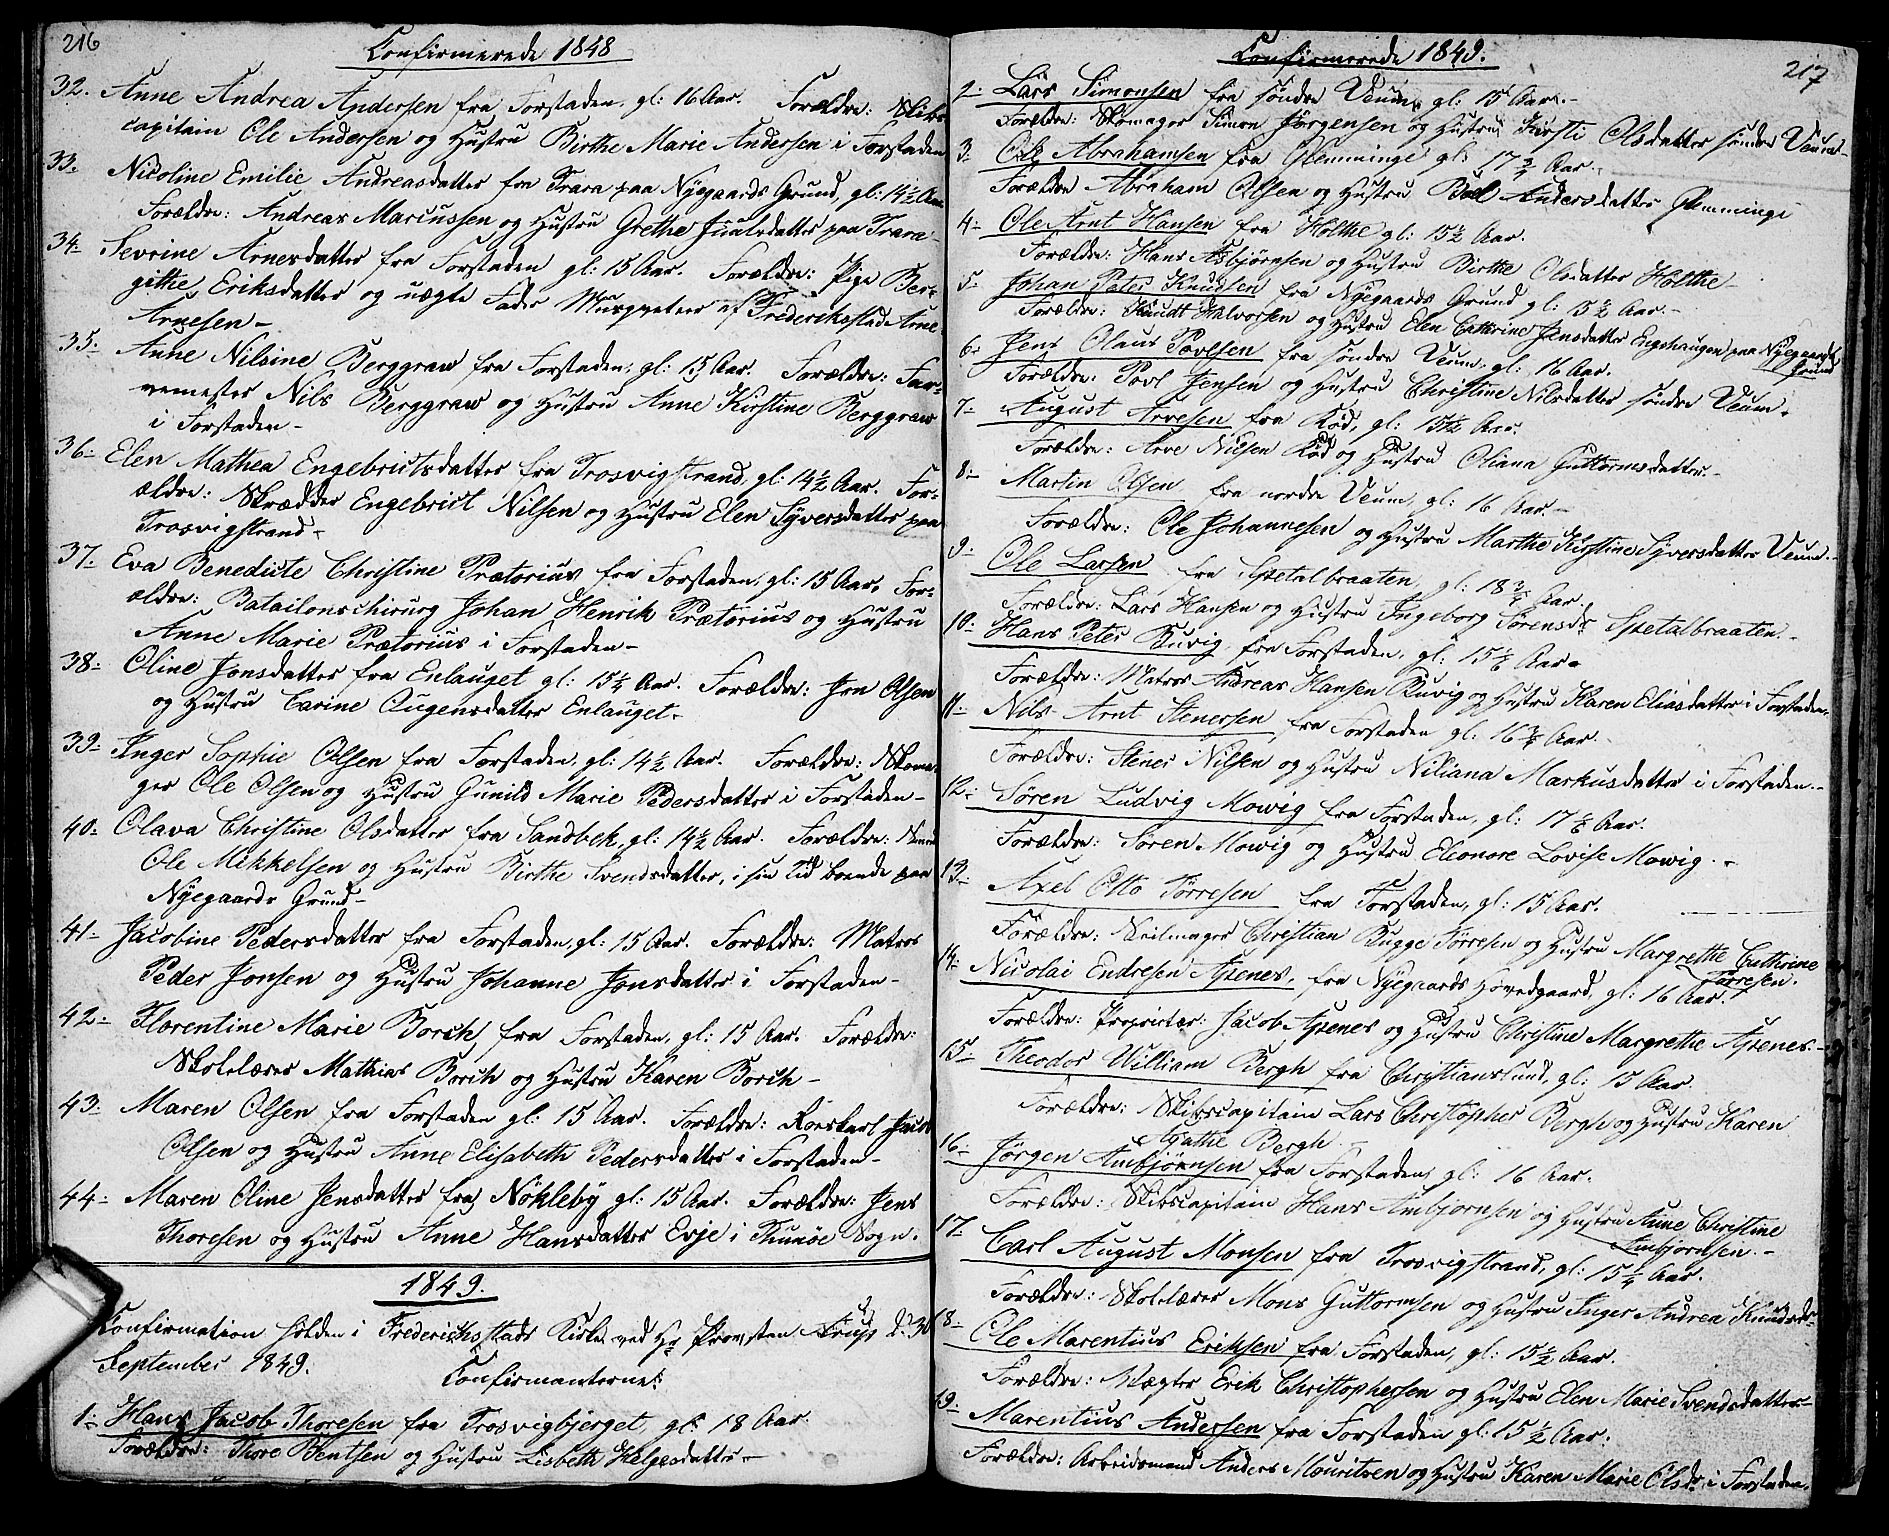 216
Confirmerede 1848
32. Anne Andrea Andersen fra Forstaden, gl: 16 Aar. Forældre: Skibs-
capitain Ole Andersen og Hustru Birthe Marie Andersen i Forstaden
33. Nicoline Emilie Andreasdatter fra Trara paa Nÿegaards Grund, gl: 14½ Aar
Forældre: Andreas Marcussen og Hustru Grethe Juulsdatter paa Trara-
34- Sevrine Arnesdatter fra Forstaden gl: 15 Aar. Forældre: Pige Ber-
githe Eriksdatter og uægte Fader Musqueteer af Frederikstad Arne
Arnesen-
35- Anne Nilsine Berggraw fra Forstaden, gl: 15 Aar. Forældre: Far-
vemester Nils Berggraw og Hustru Anne Kirstine Berggraw
i Forstaden-
36- Elen Mathea Engebrictsdatter fra Trosvigstrand, gl: 14½ Aar. For-
ældre: Skrædder Engebrict Nilsen og Hustru Elen Sÿversdatter paa
Trosvigstrand-
37- Eva Benedicte Christine Prætorius fra Forstaden, gl: 15 Aar. For-
ældre: Batailonschirurg Johan Henrik Prætorius og Hustru
Anne Marie Prætorius i Forstaden-
38- Oline Jonsdatter fra Enlauget gl: 15¼ Aar. Forældre: Jon Olsen
og Hustru Carine Augensdatter Enlauget.
39- Inger Sophie Olsen fra Forstaden, gl: 14½ Aar. Forældre: Skoma-
ger Ole Olsen og Hustru Gunild Marie Pedersdatter i Forstaden-
40- Olava Christine Olsdatter fra Sandbek, gl: 14½ Aar. Forældre:
Ole Mikkelsen og Hustru Birthe Svendsdatter, i sin Tid boende paa
Nÿegaards Grund-
41- Jacobine Pedersdatter fra Forstaden, gl: 15 Aar. Forældre: Matros
Peder Jonsen og Hustru Johanne Jonsdatter i Forstaden-
42- Florentine Marie Borch, fra Forstaden, gl: 15 Aar. Forældre:
Skolelærer Mathias Borch og Hustru Karen Borch-
43- Maren Olsen fra Forstaden gl: 15 Aar. Forældre: Roerskarl Jacob
Olsen og Hustru Anne Elisabeth Pedersdatter i Forstaden-
44- Maren Oline Jensdatter fra Nökleby gl: 15 Aar. Forældre: Jens
Thoresen og Hustru Anne Hansdatter Evje i Thunöe Sogn.
1849.
Confirmation holden i Frederichsstads Kirke ved Hr Provsten Arup d: 30
September 1849.
Confirmanterne:
1- Hans Jacob Thoresen fra Trosvigbjerget gl: 18 Aar.
Forældre: Thore Bentsen og Hustru Lisbeth Helgesdatter-
217
Confirmerede 1849.
2- Lars Simonsen fra söndre Veum, gl: 15 Aar.-
Forældre: Skomager Simon Jörgensen og Hustru Kirsti Olsdatter söndre Veum-
3- Ole Abrahamsen fra Glemminge gl: 17¾ Aar.
Forældre Abraham Olsen og Hustru Andersdatter Glemminge
4- Ole Arnt Hansen fra Holthe gl: 15½ Aar.
Forældre: Hans Asbjörnsen og Hustru Birthe Olsdatter Holthe-
5- Johan Peter Knudsen fra Nÿegaards Grund gl: 15½ Aar.-
Forældre: Knudt Halvorsen og Hustru Elen Cathrine Jensdatter Engshaugen paa Nÿegaards
Grund
6- Jens Olaus Povlsen fra söndre Veum, gl: 16 Aar.
Forældre: Povl Jensen og Hustru Christine Nilsdatter söndre Veum.
7- August Arvesen fra Röd, gl: 15½ Aar.
Forældre: Arve Nilsen Röd og Hustru Oliana Guttormsdatter-
8- Martin Olsen fra nordre Veum, gl: 16 Aar.-
Forældre: Ole Johannesen og Hustru Marthe Kirstine Sÿversdatter Veum.-
9- Ole Larsen fra Spetalbraaten gl: 18¾ Aar.
Forældre: Lars Hansen og Hustru Ingeborg Sörensdr Spetalbraaten.-
10- Hans Peter Ruvig fra Forstaden, gl: 15½ Aar.
Forældre: Matros Andreas Hansen Ruvig og Hustru Karen Eliasdatter i Forstaden.
11- Nils Arnt Stenersen fra Forstaden gl: 16¾ Aar.
Forældre: Stener Nilsen og Hustru Niliana Markusdatter i Forstaden.-
12- Sören Ludvig Mowig fra Forstaden, gl: 17½ Aar.
Forældre: Sören Mowig og Hustru Eleonore Lovise Mowig.-
13- Axel Otto Törresen fra Forstaden, gl: 15 Aar.
Forældre: Seilmager Christian Bugge Törresen og Hustru Margrethe Cathrine
Törresen.
14- Nicolai Endresen Apenes, fra Nÿegaards Hovedgaard, gl: 16 Aar.
Forældre: Proprietær Jacob Apenes og Hustru Christine Margrethe Apenes.-
15- Theodor William Bergh fra Christianslund, gl: 15 Aar.
Forældre: Skibscapitain Lars Christopher Bergh og Hustru Karen
Agathe Bergh.
16- Jörgen Ambjörnsen fra Forstaden, gl: 16 Aar.
Forældre: Skibscapitain Hans Ambjörnsen og Hustru Anne Christine
Ambjörnsen.-
17- Carl August Monsen fra Trosvigstrand, gl: 15¼ Aar.
Forældre: Skolelærer Mons Guttormsen og Hustru Inger Andrea Knudsdr-
18- Ole Marentius Eriksen fra Forstaden, gl: 15½ Aar.
Forældre: Vægter Erik Christophersen og Hustru Elen Marie Svendsdatter-
19- Marentius Andersen fra Forstaden gl: 15½ Aar:
Forældre: Arbeidsmand Anders Mouritzen og Hustru Karen Marie Olsdr i Forstaden.